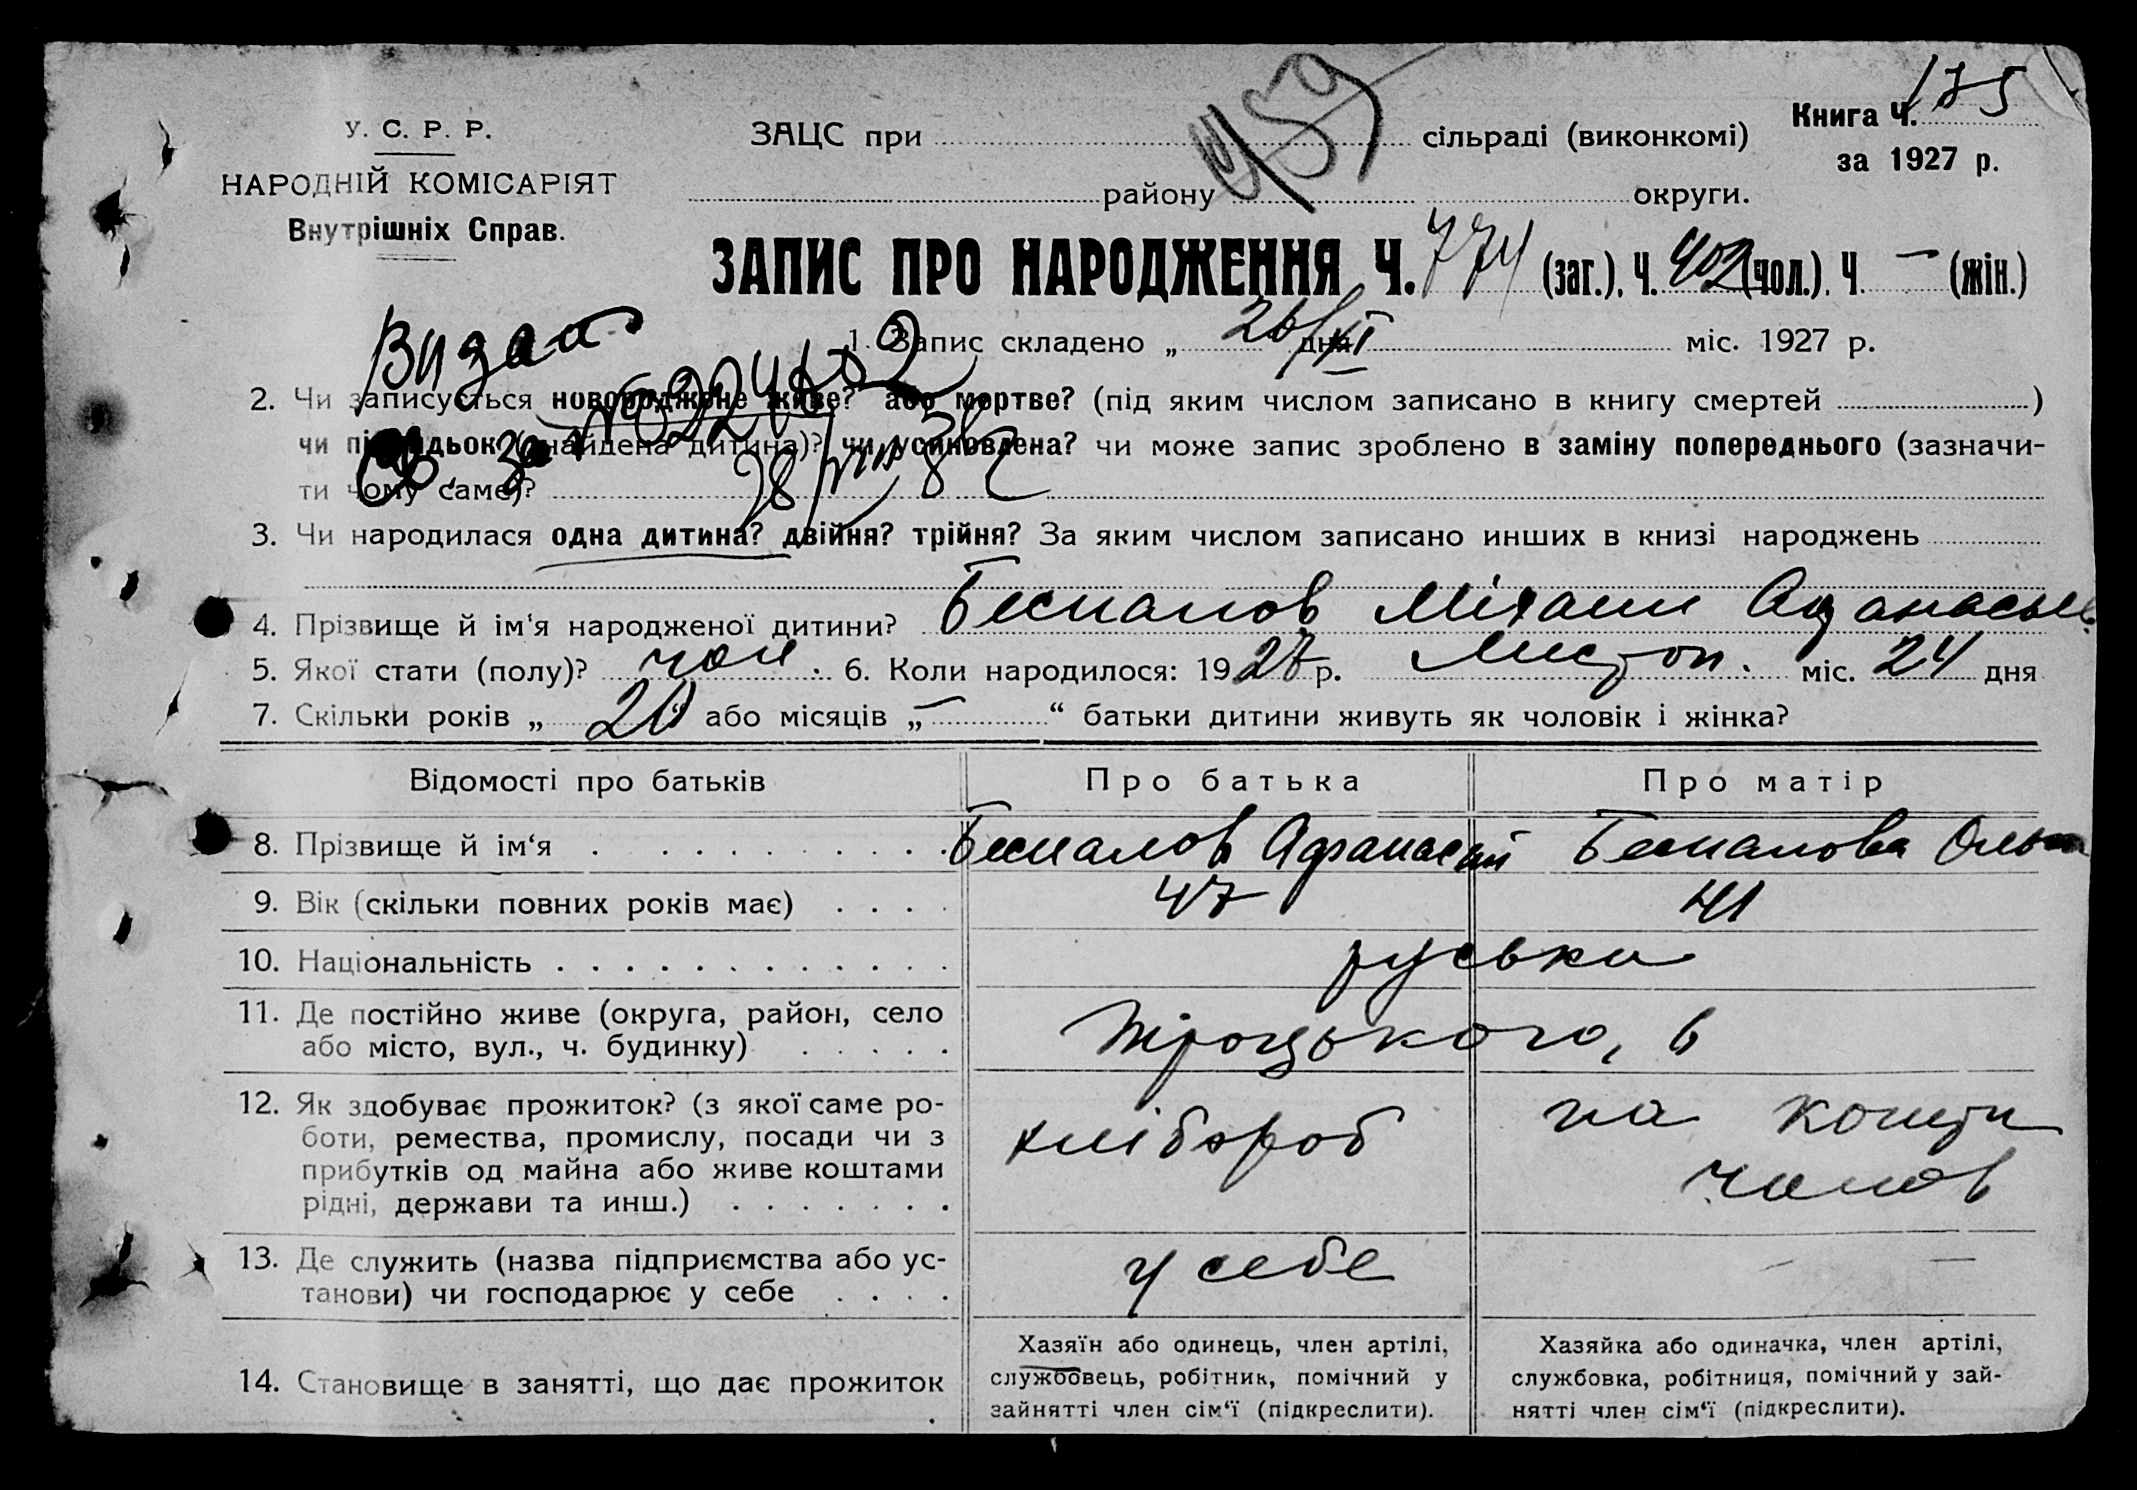 У. С. Р. Р.
НАРОДНІЙ КОМІСАРІЯТ
Внутрішніх Справ.
ЗАЦС при сільраді (виконкомі)
району округи.
459
Книга Ч. 175
за 1927 р.
ЗАПИС ПРО НАРОДЖЕННЯ Ч. 774 (заг.). Ч. 402 (чол.). Ч. — (жін.)
1. Запис складено „ 26/XI дня міс. 1927 р.
2. Чи записується новороджене живе? або мертве? (під яким числом записано в книгу смертей )
чи підкидьок (знайдена дитина)? чи усиновлена? чи може запис зроблено в заміну попереднього (зазначи-
ти чому саме)?
3. Чи народилася одна дитина? двійня? трійня? За яким числом записано инших в книзі народжень
4. Прізвище й ім‘я народженої дитини? Беспалов Міхаил
5. Якої стати (полу)? чол. 6. Коли народилося: 1927 р. Листоп. міс. 24 дня
7. Скільки років „ 20 “ або місяців „ — “ батьки дитини живуть як чоловік і жінка?
Відомості про батьків Про батька Про матір
8. Прізвище й ім‘я Беспалов Афанасий Беспалова Ольга
9. Вік (скільки повних років має) 47 41
10. Національність руськи
11. Де постійно живе (округа, район, село
або місто, вул., ч. будинку) Троцького, 6
12. Як здобуває прожиток? (з якої саме ро-
боти, ремества, промислу, посади чи з
прибутків од майна або живе коштами
рідні, держави та инш.)
хлібороб
на кошти
чолов
13. Де служить (назва підприємства або ус-
танови) чи господарює у себе
у себе — —
14. Становище в занятті, що дає прожиток
Хазяїн або одинець, член артілі,
службовець, робітник, помічний у
зайнятті член сім‘ї (підкреслити).
Хазяйка або одиначка, член артілі,
службовка, робітниця, помічний у зай-
нятті член сім‘ї (підкреслити).